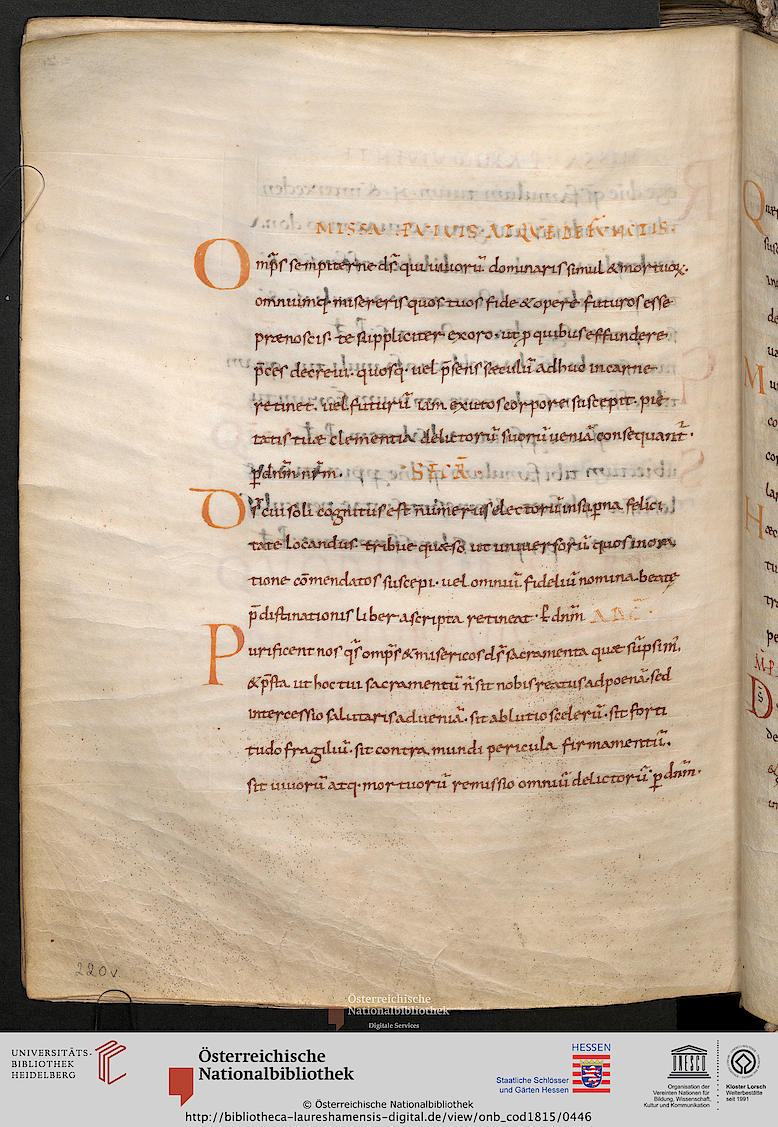 MISSA P VIVIS ATQVE DEFVNCTIS.
Omps sempiterne ds qui uiuorū dominaris simul & mortuoꝝ.
omniumq· misereris quos tuos fide & opere futuros esse
prænoscis· te suppliciter exoro· ut ꝓ quibus effundere
p̄ces decreui· quosq· uel p̄sens sæculū adhuc in carne
retinet· uel futurū iam exutos corpore suscepit· pie
tatis tuæ clementia delictorū suorū ueniā consequant̄·
ꝑ dnm nrm· SECR̄
Ds̄ cui soli cognitus est numerus electorū in sup̄na felici
tate locandus tribue quæso ut uniuersorū quos in ora
tione cōmendatos suscepi· uel omniū fideliū nomina beatę
p̄distinationis liber ascripta retineat· ꝑ dnm AD CŌ
Purificent nos qs omps & misericors ds sacramenta quæ sūpsim̄·
& p̄sta ut hoc tui sacramentū n̄ sit nobis reatus ad poenā· sed
intercessio salutaris ad ueniā· sit ablutio scelerū· sit forti
tudo fragiliū· sit contra mundi pericula firmamentū·
sit uiuorū atq· mortuorū remissio omniū delictorū· ꝑ dnm·
220v
Österreichische
Nationalbibliothek
Digitale Services
UNIVERSITÄTS-
BIBLIOTHEK
HEIDELBERG
Österreichische
Nationalbibliothek
HESSEN
Staatliche Schlösser
und Gärten Hessen
UNESCO
Organisation der
Vereinten Nationen für
Bildung, Wissenschaft,
Kultur und Kommunikation
Kloster Lorsch
Welterbestätte
seit 1991
© Österreichische Nationalbibliothek
http://bibliotheca-laureshamensis-digital.de/view/onb_cod1815/0446